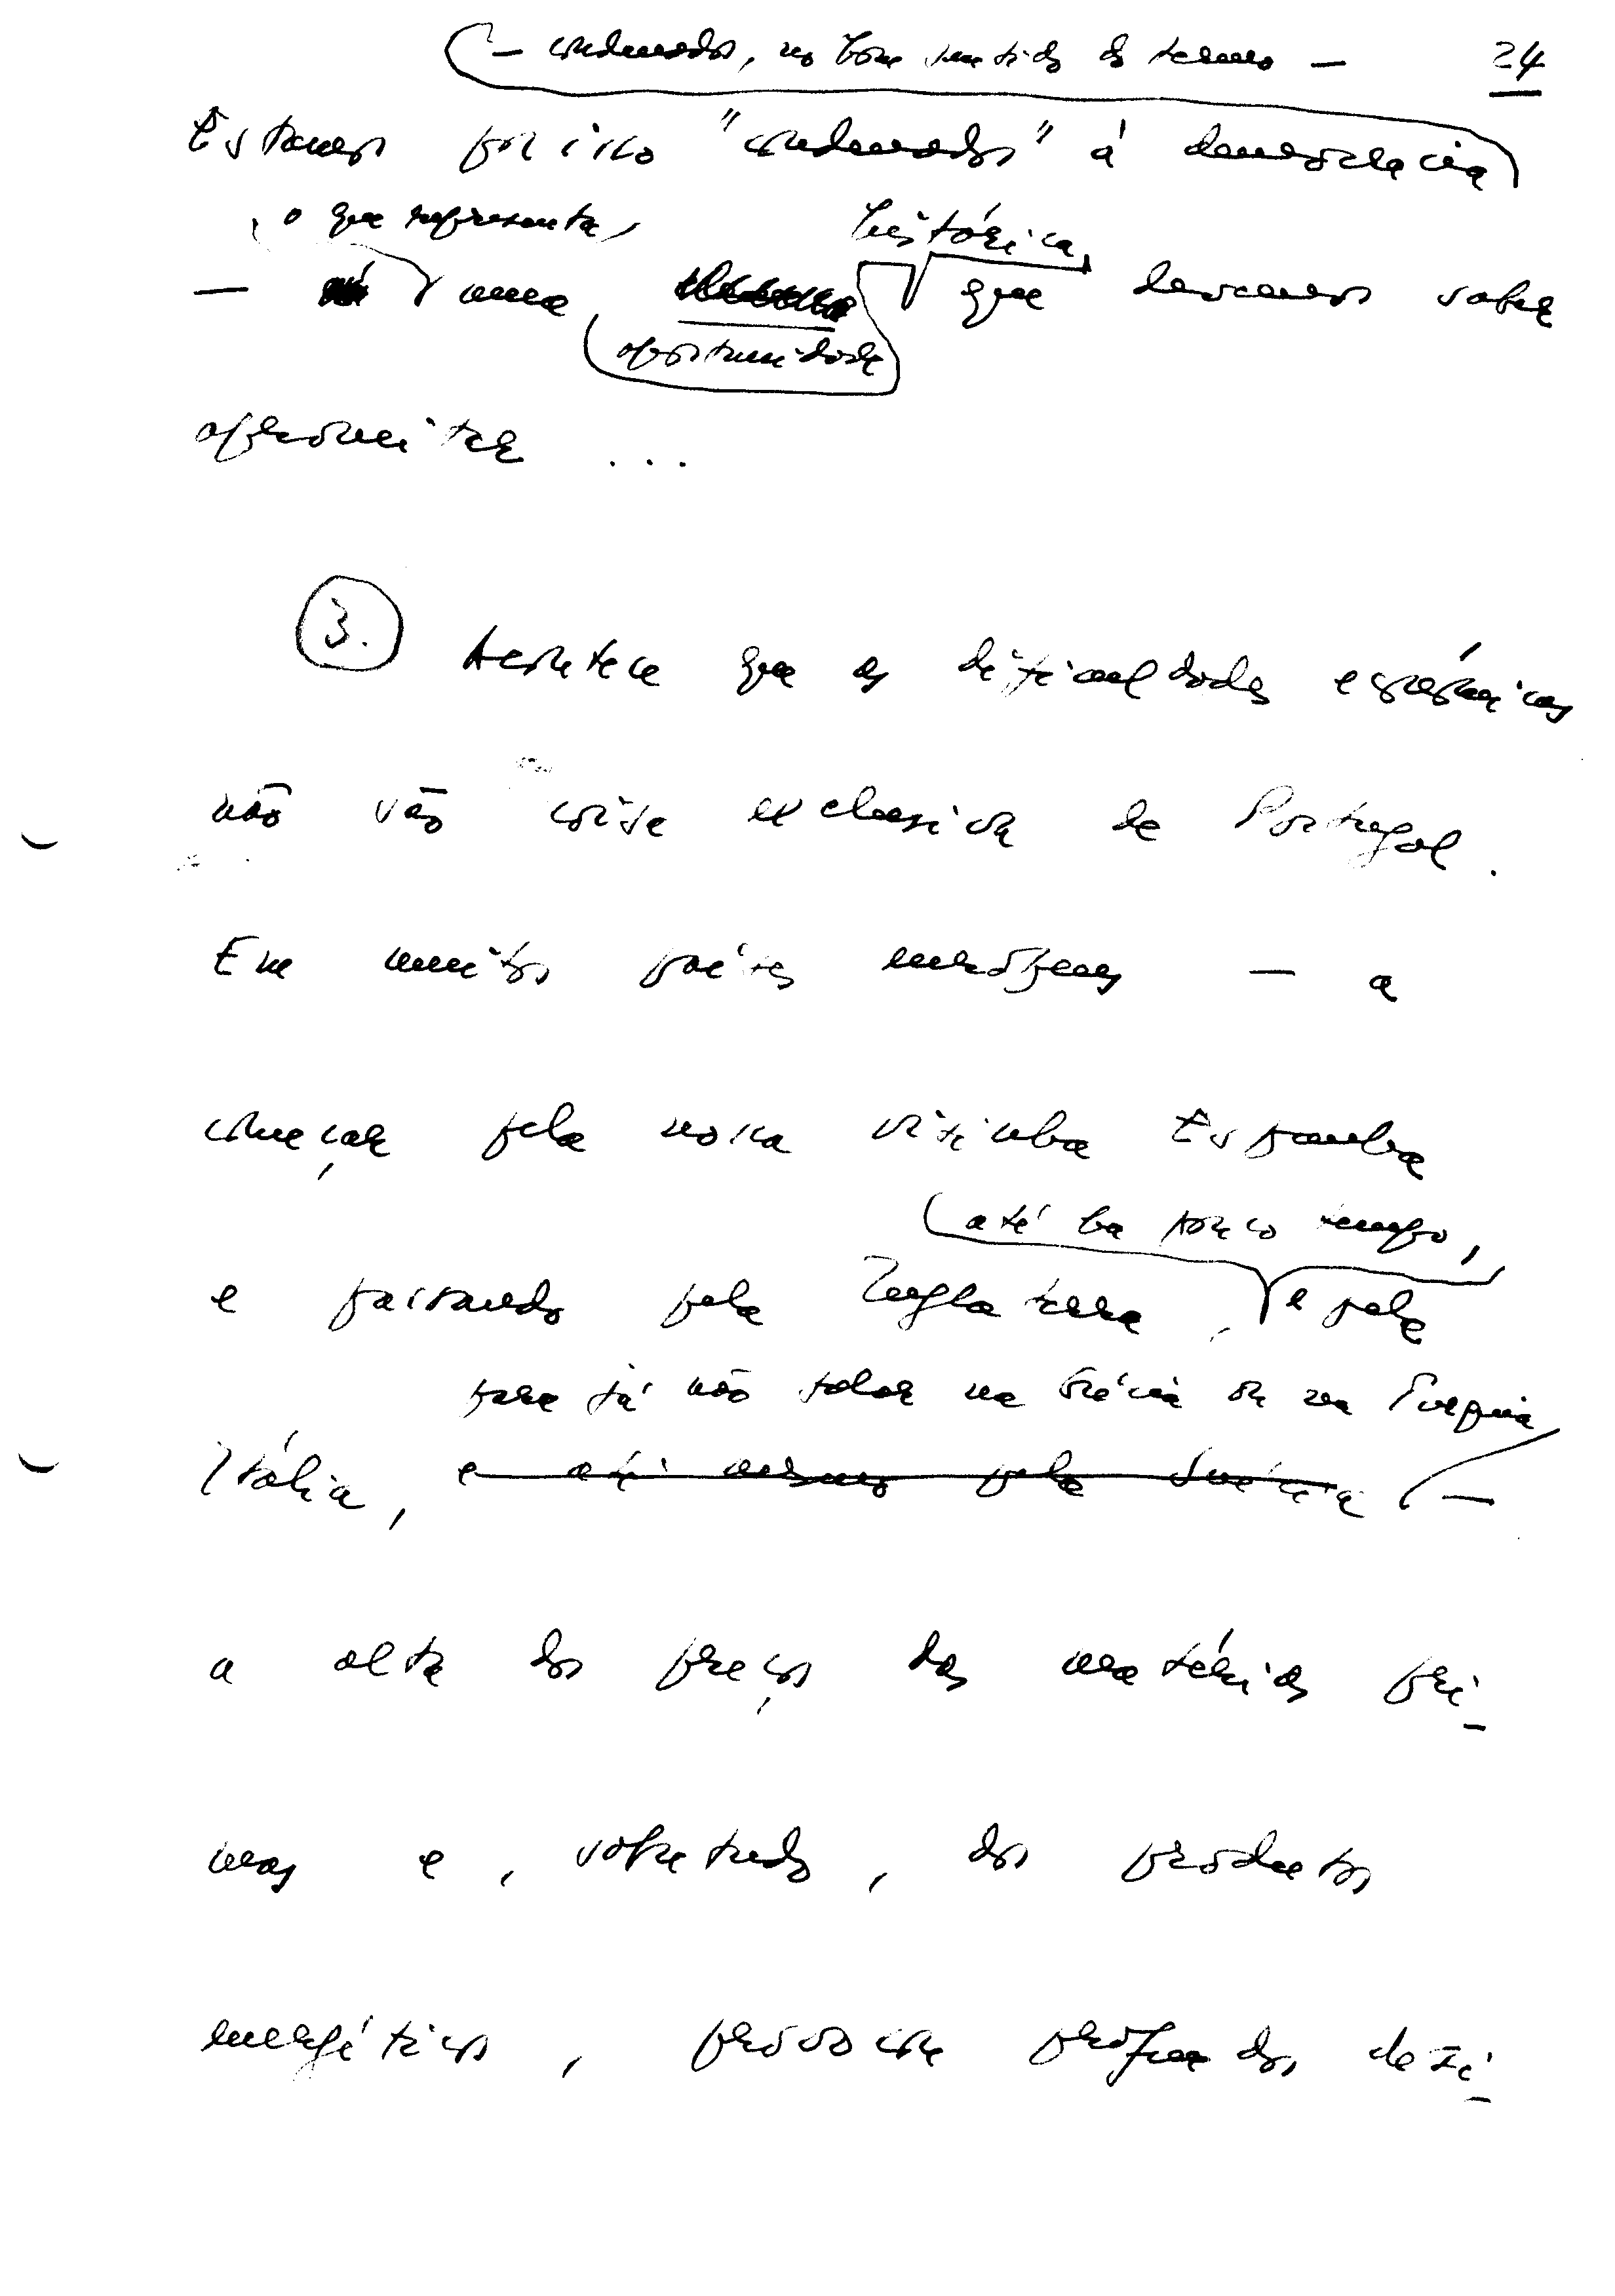 — condenados, no bom sentido do termo —
24
Estamos por isso "condenados" á democracia
, o que representa,
histórica,
— uma que devemos saber
oportunidade
aproveitar ...
3. Acontece que as dificuldades económicas
não são coisa exclusiva de Portugal.
Em muitos países europeus — a
começar pela nossa vizinha Espanha
até ha pouco tempo,
e passando pela Inglaterra, e pela
para já não falar na Grécia ou na Turquia
Itália, e até mesmo pela Suécia —
a alta dos preços das matérias pri-
mas e, sobretudo, dos produtos
energéticos, provocou profundos dese-